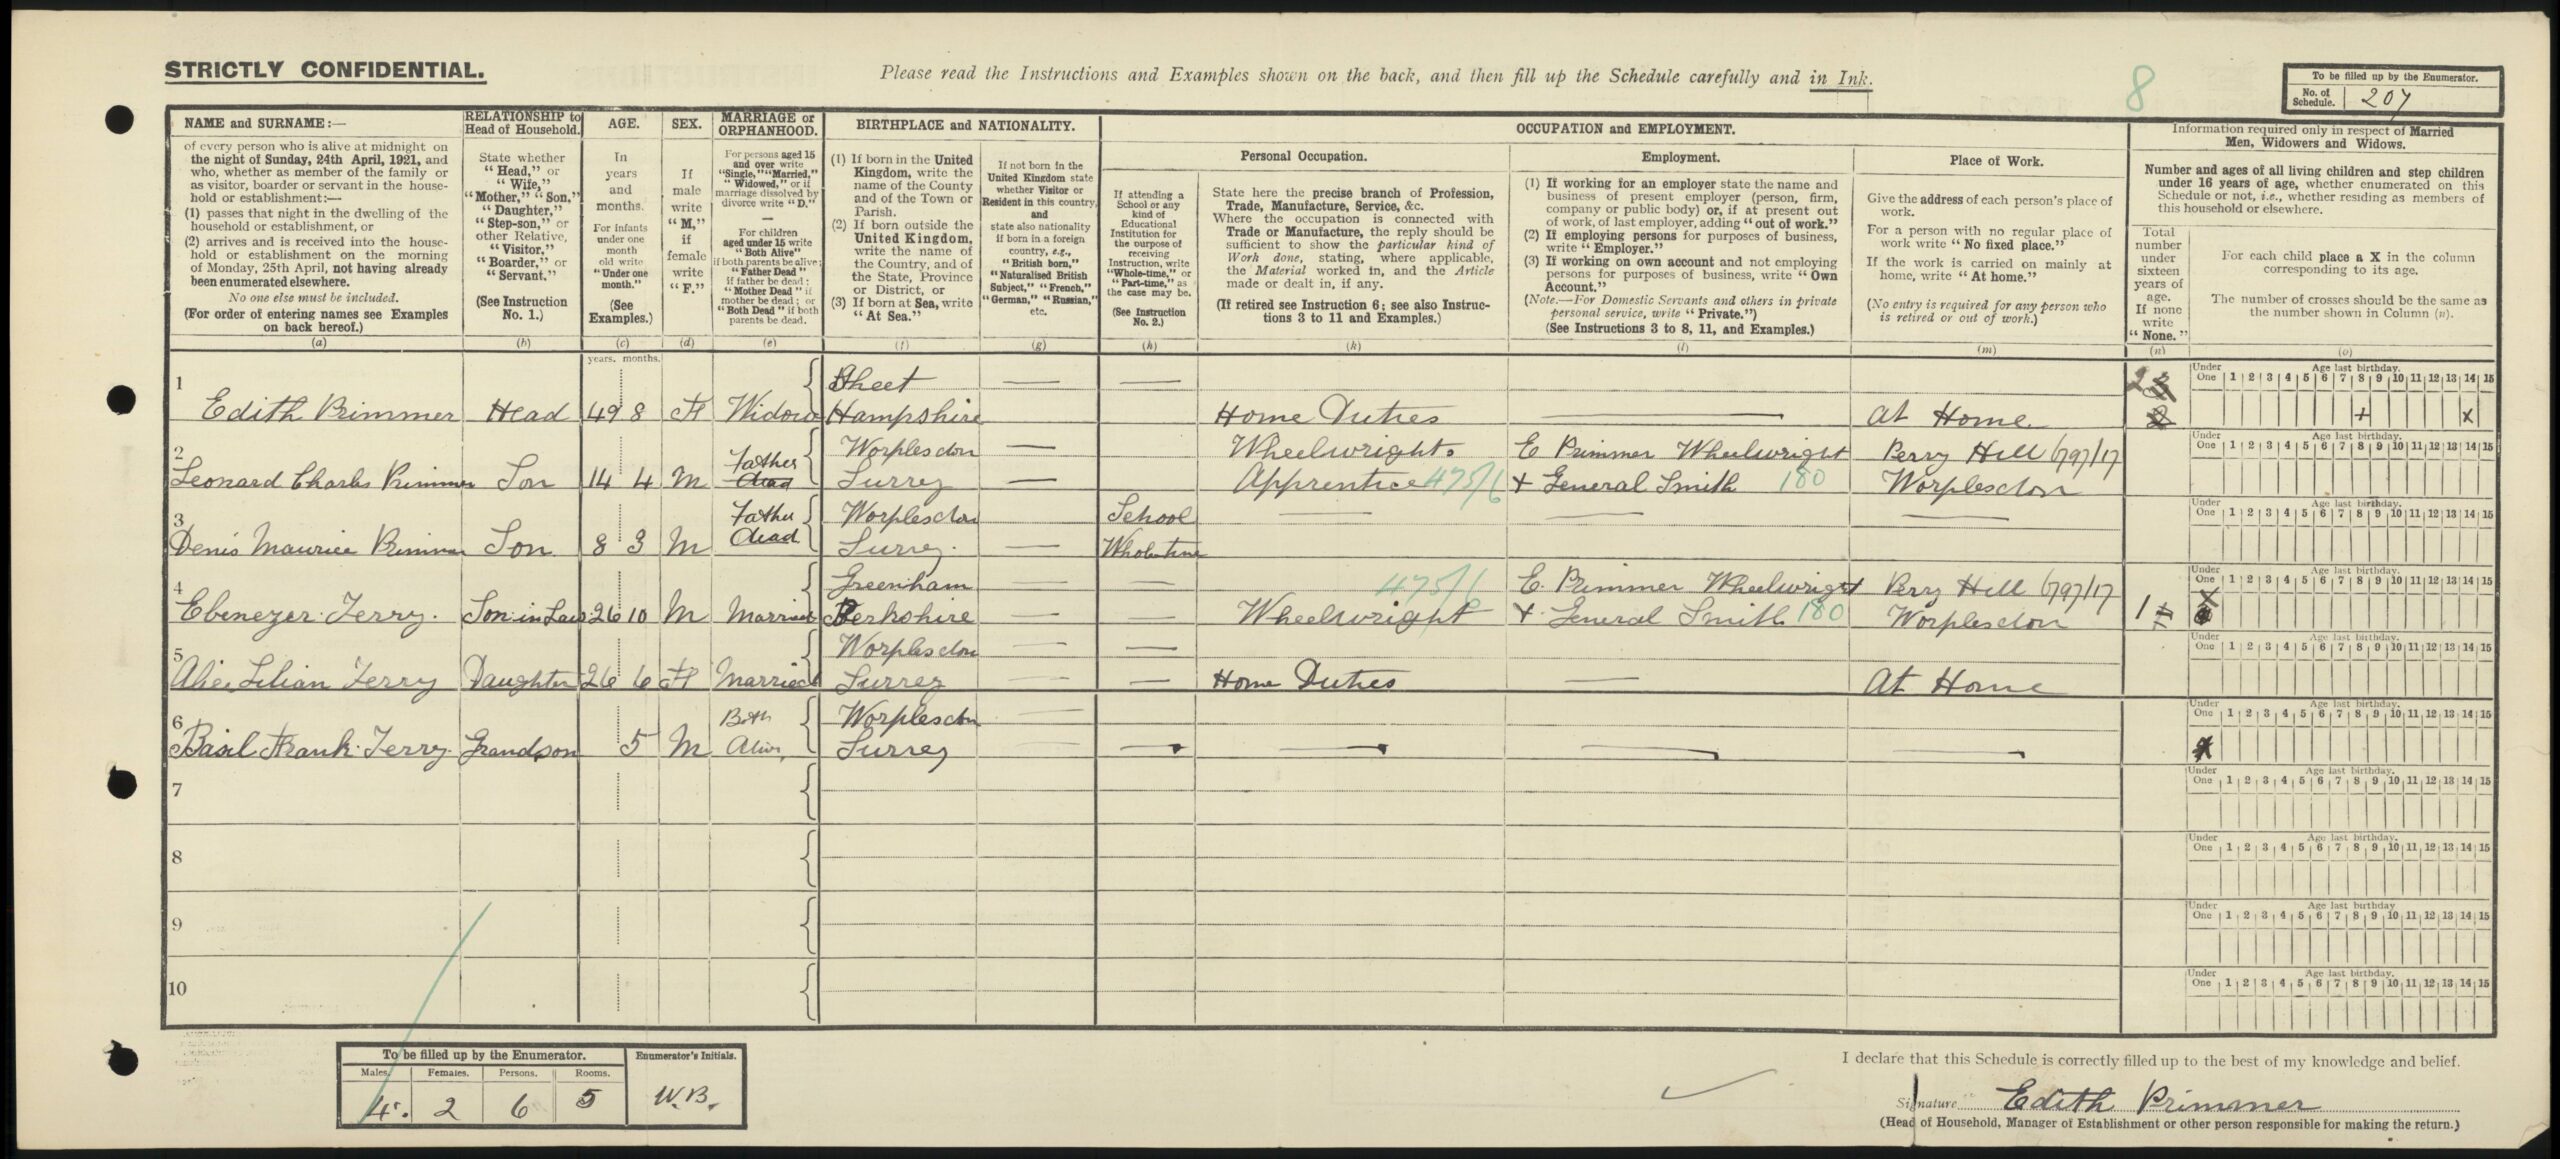 STRICTLY CONFIDENTIAL.
Please read the Instructions and Examples shown on the back, and then fill up the Schedule carefully and in Ink.
8
To be filled up by the Enumerator.
No. of Schedule. 207
NAME and SURNAME:—
of every person who is alive at midnight on
the night of Sunday, 24th April, 1921, and
who, whether as member of the family or
as visitor, boarder or servant in the house-
hold or establishment:—
(1) passes that night in the dwelling of the
household or establishment, or
(2) arrives and is received into the house-
hold or establishment on the morning
of Monday, 25th April, not having already
been enumerated elsewhere.
No one else must be included.
(For order of entering names see Examples
on back hereof.)
(a)
RELATIONSHIP to
Head of Household.
State whether
"Head," or
"Wife,"
"Mother," "Son,"
"Daughter,"
"Step-son," or
other Relative,
"Visitor,"
"Boarder," or
"Servant."
(See Instruction
No. 1.)
(b)
AGE.
In
years
and
months.
For infants
under one
month
old write
"Under one
month."
(See
Examples.)
(c)
years. months.
SEX.
If
male
write
"M,"
if
female
write
"F."
(d)
MARRIAGE or
ORPHANHOOD.
For persons aged 15
and over write
"Single," "Married,"
"Widowed," or if
marriage dissolved by
divorce write "D."
—
For children
aged under 15 write
"Both Alive"
if both parents be alive;
"Father Dead"
if father be dead;
"Mother Dead" if
mother be dead; or
"Both Dead" if both
parents be dead.
(e)
BIRTHPLACE and NATIONALITY.
(1) If born in the United
Kingdom, write the
name of the County
and of the Town or
Parish.
(2) If born outside the
United Kingdom,
write the name of
the Country, and of
the State, Province
or District, or
(3) If born at Sea, write
"At Sea."
(f)
If not born in the
United Kingdom state
whether Visitor or
Resident in this country,
and
state also nationality
if born in a foreign
country, e.g.,
"British born,"
"Naturalised British
Subject," "French,"
"German," "Russian,"
etc.
(g)
OCCUPATION and EMPLOYMENT.
If attending a
School or any
kind of
Educational
Institution for
the purpose of
receiving
Instruction, write
"Whole-time," or
"Part-time," as
the case may be.
(See Instruction
No. 2.)
(h)
Personal Occupation.
State here the precise branch of Profession,
Trade, Manufacture, Service, &c.
Where the occupation is connected with
Trade or Manufacture, the reply should be
sufficient to show the particular kind of
Work done, stating, where applicable,
the Material worked in, and the Article
made or dealt in, if any.
(If retired see Instruction 6; see also Instruc-
tions 3 to 11 and Examples.)
(k)
Employment.
(1) If working for an employer state the name and
business of present employer (person, firm,
company or public body) or, if at present out
of work, of last employer, adding "out of work."
(2) If employing persons for purposes of business,
write "Employer."
(3) If working on own account and not employing
persons for purposes of business, write "Own
Account."
(Note.—For Domestic Servants and others in private
personal service, write "Private.")
(See Instructions 3 to 8, 11, and Examples.)
(l)
Place of Work.
Give the address of each person's place of
work.
For a person with no regular place of
work write "No fixed place."
If the work is carried on mainly at
home, write "At home."
(No entry is required for any person who
is retired or out of work.)
(m)
Information required only in respect of Married
Men, Widowers and Widows.
Number and ages of all living children and step children
under 16 years of age, whether enumerated on this
Schedule or not, i.e., whether residing as members of
this household or elsewhere.
Total
number
under
sixteen
years of
age.
If none
write
"None."
(n)
For each child place a X in the column
corresponding to its age.
The number of crosses should be the same as
the number shown in Column (n).
(o)
Under One Age last birthday. 1 2 3 4 5 6 7 8 9 10 11 12 13 14 15
1 Sheet — — 2
Edith Primmer Head 49 8 F Widow Hampshire Home Duties — At Home + x
Under One Age last birthday. 1 2 3 4 5 6 7 8 9 10 11 12 13 14 15
2 Father Worplesdon — Wheelwrights E Primmer Wheelwright Perry Hill 797/17
Leonard Charles Primmer Son 14 4 M dead Surrey — Apprentice 475/6 + General Smith 180 Worplesdon
Under One Age last birthday. 1 2 3 4 5 6 7 8 9 10 11 12 13 14 15
3 Father Worplesdon School — — —
Denis Maurice Primmer Son 8 3 M dead. Surrey. — Whole time
Under One Age last birthday. 1 2 3 4 5 6 7 8 9 10 11 12 13 14 15
4 Greenham — — 475/6 E. Primmer Wheelwright Perry Hill 797/17
Ebenezer Terry. Son in Law 26 10 M Married Berkshire — — Wheelwright + General Smith 180 Worplesdon 1 X
Under One Age last birthday. 1 2 3 4 5 6 7 8 9 10 11 12 13 14 15
5 Worplesdon — —
Alice Lilian Terry Daughter 26 6 F Married Surrey — — Home Duties — At Home
Under One Age last birthday. 1 2 3 4 5 6 7 8 9 10 11 12 13 14 15
6 Both Worplesdon —
Basil Frank Terry. Grandson 5 M Alive, Surrey — — — — —
Under One Age last birthday. 1 2 3 4 5 6 7 8 9 10 11 12 13 14 15
7
Under One Age last birthday. 1 2 3 4 5 6 7 8 9 10 11 12 13 14 15
8
Under One Age last birthday 1 2 3 4 5 6 7 8 9 10 11 12 13 14 15
9
Under One Age last birthday. 1 2 3 4 5 6 7 8 9 10 11 12 13 14 15
10
To be filled up by the Enumerator. Enumerator's Initials.
Males. Females. Persons. Rooms.
4. 2 6 5 W.B.
I declare that this Schedule is correctly filled up to the best of my knowledge and belief.
Signature Edith Primmer
(Head of Household, Manager of Establishment or other person responsible for making the return.)